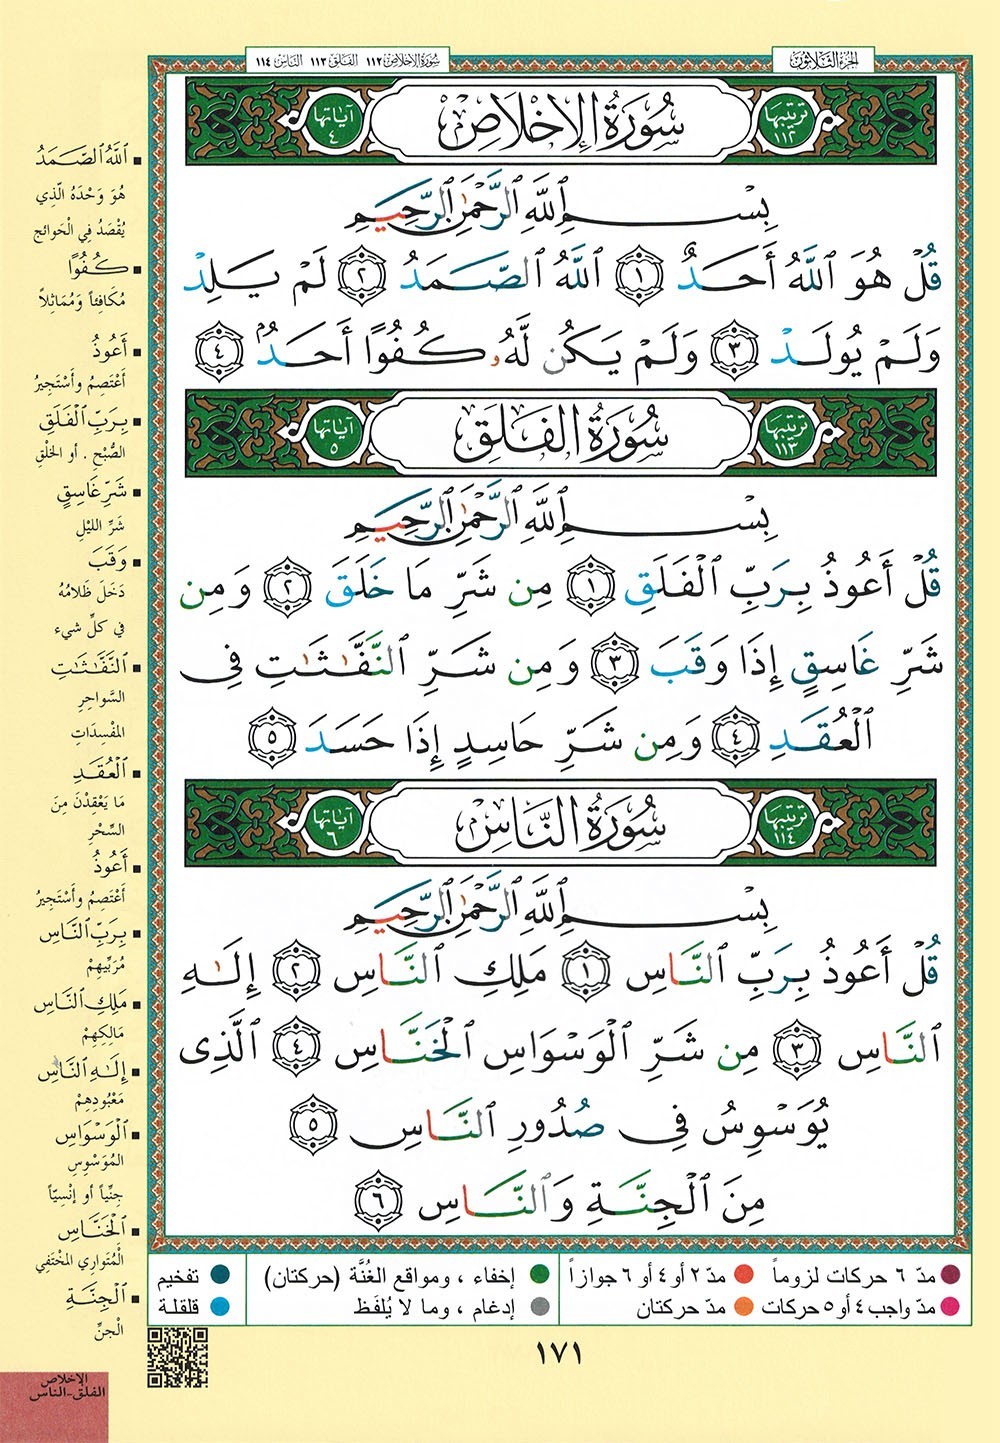 الجزء الثلاثون
سورة الإخلاص ١١٢ الفلق ١١٣ الناس ١١٤
ترتيبها ١١٢
سُورَةُ الإِخْلَاصِ
آياتها ٤
بِسْمِ ٱللَّهِ ٱلرَّحْمَٰنِ ٱلرَّحِيمِ
قُلْ هُوَ ٱللَّهُ أَحَدٌ ١ ٱللَّهُ ٱلصَّمَدُ ٢ لَمْ يَلِدْ
وَلَمْ يُولَدْ ٣ وَلَمْ يَكُن لَّهُۥ كُفُوًا أَحَدٌۢ ٤
ترتيبها ١١٣
سُورَةُ الفَلَقِ
آياتها ٥
بِسْمِ ٱللَّهِ ٱلرَّحْمَٰنِ ٱلرَّحِيمِ
قُلْ أَعُوذُ بِرَبِّ ٱلْفَلَقِ ١ مِن شَرِّ مَا خَلَقَ ٢ وَمِن
شَرِّ غَاسِقٍ إِذَا وَقَبَ ٣ وَمِن شَرِّ ٱلنَّفَّٰثَٰتِ فِى
ٱلْعُقَدِ ٤ وَمِن شَرِّ حَاسِدٍ إِذَا حَسَدَ ٥
ترتيبها ١١٤
سُورَةُ النَّاسِ
آياتها ٦
بِسْمِ ٱللَّهِ ٱلرَّحْمَٰنِ ٱلرَّحِيمِ
قُلْ أَعُوذُ بِرَبِّ ٱلنَّاسِ ١ مَلِكِ ٱلنَّاسِ ٢ إِلَٰهِ
ٱلنَّاسِ ٣ مِن شَرِّ ٱلْوَسْوَاسِ ٱلْخَنَّاسِ ٤ ٱلَّذِى
يُوَسْوِسُ فِى صُدُورِ ٱلنَّاسِ ٥
مِنَ ٱلْجِنَّةِ وَٱلنَّاسِ ٦
ٱللَّهُ ٱلصَّمَدُ
هُوَ وَحْدَهُ الَّذِي
يُقْصَدُ فِي الْحَوائِجِ
كُفُوًا
مُكَافِئاً وَمُمَاثِلاً
أَعُوذُ
أَعْتَصِمُ وأَسْتَجِيرُ
بِرَبِّ ٱلْفَلَقِ
الصُّبْحِ . أو الخَلْقِ
شَرِّ غَاسِقٍ
شَرِّ الليْلِ
وَقَبَ
دَخَلَ ظَلامُهُ
في كلِّ شيء
ٱلنَّفَّٰثَٰتِ
السَّواحِرِ
المفْسِدَاتِ
ٱلْعُقَدِ
مَا يَعْقِدْنَ مِنَ
السِّحْرِ
أَعُوذُ
أَعْتَصِمُ وأَسْتَجِيرُ
بِرَبِّ ٱلنَّاسِ
مُرَبِّيهِمْ
مَلِكِ ٱلنَّاسِ
مَالِكِهِمْ
إِلَٰهِ ٱلنَّاسِ
مَعْبُودِهِمْ
ٱلْوَسْوَاسِ
المُوَسْوِسِ
جِنِّياً أو إنْسِيّاً
ٱلْخَنَّاسِ
الْمُتَوارِي المخْتَفِي
ٱلْجِنَّةِ
الْجِنِّ
مدّ ٦ حركات لزوماً
مدّ ٢ أو ٤ أو ٦ جوازاً
إخفاء ، ومواقع الغُنَّة (حركتان)
تفخيم
مدّ واجب ٤ أو ٥ حركات
مدّ حركتان
إدغام ، وما لا يُلفَظ
قلقلة
١٧١
الإخلاص
الفلق-الناس